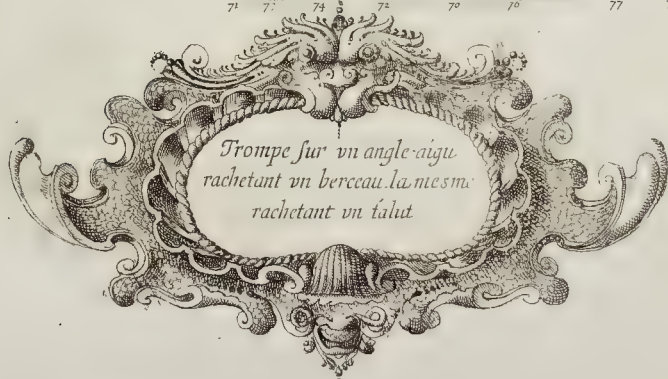 71 7 74 72 70 76 77
Trompe sur vn angle-aigu
rachetant vn berceau. la mesme
rachetant vn talut